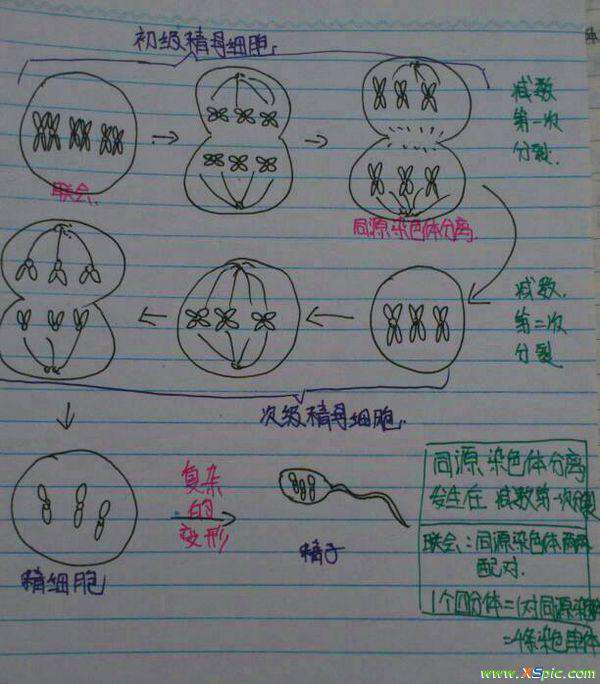 初级精母细胞
减数
第一次
分裂.
联会.
同源染色体分离
减数.
第二次
分裂
次级精母细胞
复杂
的
变形
精细胞
精子
同源染色体分离
发生在减数第一次
联会:同源染色体两两
配对.
1个四分体=1对同源染
=4条染色单体
www.XSpic.com